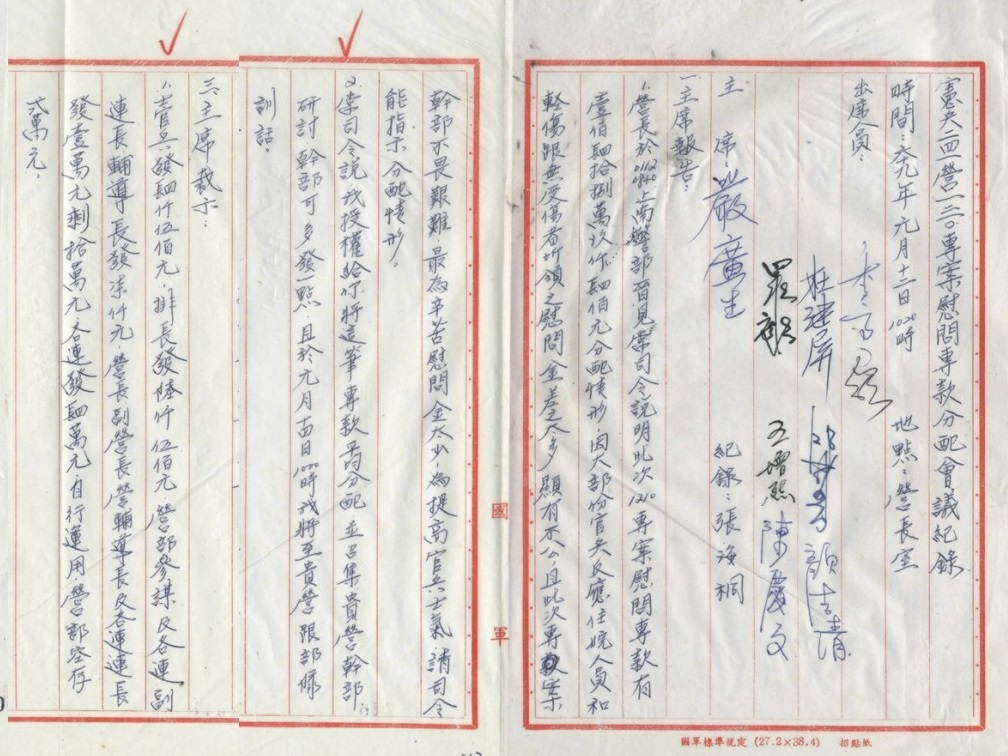 憲兵二一一營一二一〇專案慰問專款分配會議紀錄
時間：六九年元月十二日1020時　地點：營長室
出席員：
主席：嚴廣生
紀錄：張海桐
一、主席報告：
1.營長於0112 0840至南警部晉見常司令說明此次1210專案慰問專款有
壹佰肆拾捌萬玖仟肆佰元分配情形，因大部份官兵反應住院人員和
輕傷跟無受傷者所領之慰問金差太多，顯有不公，且此次專案
幹部不畏艱難，最為辛苦慰問金太少，為提高官兵士氣請司令
能指示分配情形。
2.常司令說我授權給你將這筆專款平均分配，並召集貴營幹部
研討，幹部可多發點，且於元月十四日1000時我將至貴營跟部隊
訓話。
三、主席裁示：
1.士官兵發肆仟伍佰元，排長發陸仟伍佰元，營部參謀及各連副
連長、輔導長發柒仟元，營長副營長營輔導長及各連連長
發壹萬元剩拾萬元各連發肆萬元自行運用，營部空存
貳萬元。
國軍
國軍標準規定 (27.2×38.4)　招點紙